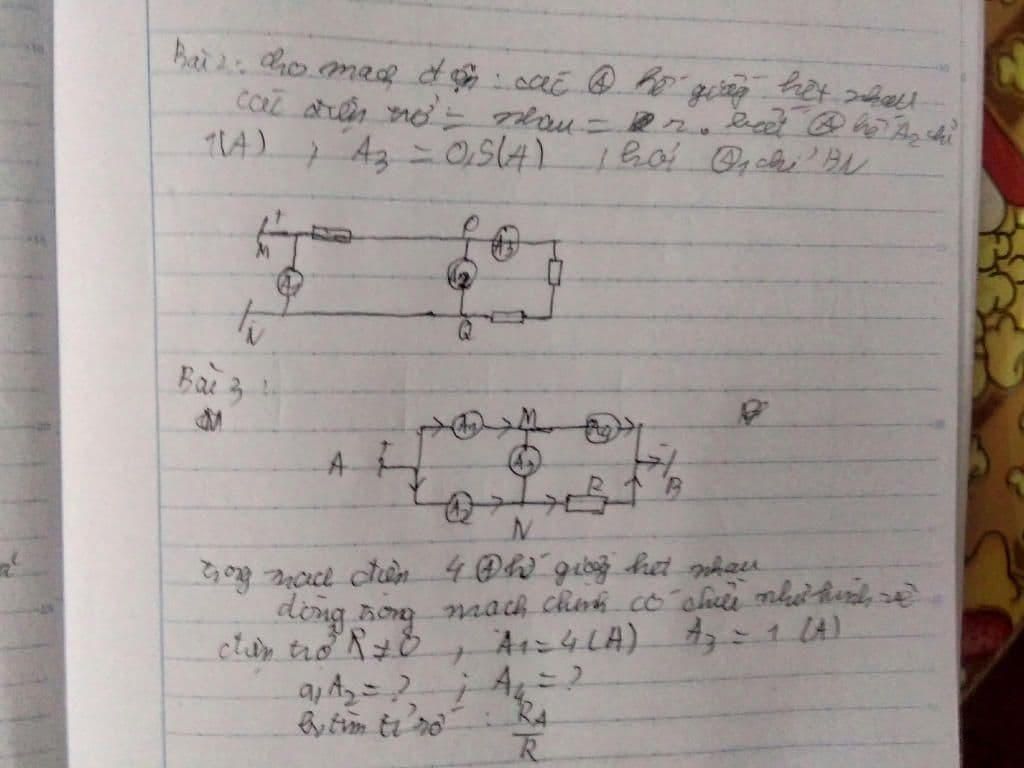 Bài 2: Cho mạch điện: các Ⓐ kế giống hệt nhau
các điện trở = nhau = r. biết Ⓐ kế A2 chỉ
1(A) ; A3 = 0,5(A) ; hỏi Ⓐ1 chỉ BN
+
M
P
A3
A1
A2
N
Q
Bài 3:
M
A1 M A4
A + A3 - B
R
A2
N
Trong mạch điện 4 Ⓐ kế giống hệt nhau
dòng trong mạch chính có chiều như hình vẽ
điện trở R ≠ 0 , A1 = 4(A) A3 = 1 (A)
a, A2 = ? ; A4 = ?
b, tìm tỉ số : RA
R